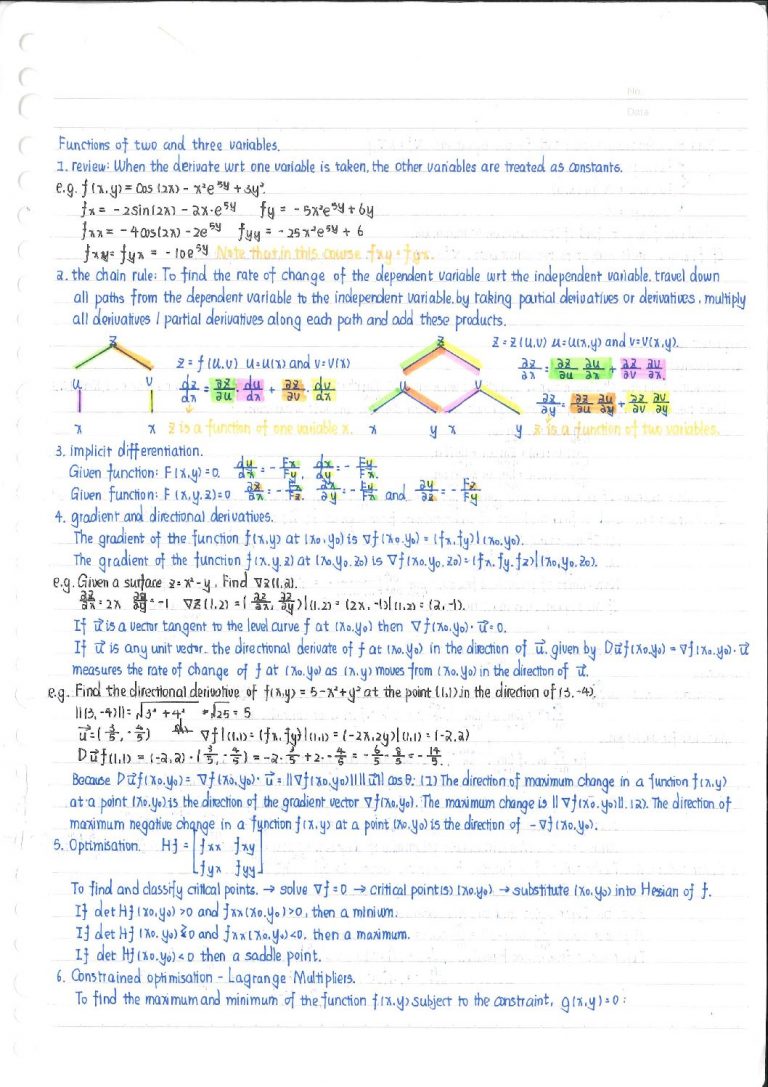 No.
Date
Functions of two and three variables.
1. review: When the derivate wrt one variable is taken, the other variables are treated as constants.
e.g. f(x,y) = cos(2x) - x²e^5y + 3y².
fx = -2sin(2x) - 2x·e^5y    fy = -5x²e^5y + 6y
fxx = -4cos(2x) - 2e^5y    fyy = -25x²e^5y + 6
fxy = fyx = -10e^5y  Note that in this course fxy = fyx.
2. the chain rule: To find the rate of change of the dependent variable wrt the independent variable, travel down
all paths from the dependent variable to the independent variable, by taking partial derivatives or derivatives, multiply
all derivatives / partial derivatives along each path and add these products.
z
u v
x x
z = f(u,v)  u=u(x) and v=v(x)
dz/dx = ∂z/∂u · du/dx + ∂z/∂v · dv/dx
z is a function of one variable x.
z
u v
x y x y
z = z(u,v) u=u(x,y) and v=v(x,y).
∂z/∂x = ∂z/∂u ∂u/∂x + ∂z/∂v ∂v/∂x.
∂z/∂y = ∂z/∂u ∂u/∂y + ∂z/∂v ∂v/∂y
z is a function of two variables.
3. implicit differentiation.
Given function: F(x,y)=0. dy/dx = -Fx/Fy, dx/dy = -Fy/Fx.
Given function: F(x,y,z)=0 ∂z/∂x = -Fx/Fz, ∂x/∂y = -Fy/Fx and ∂y/∂z = -Fz/Fy
4. gradient and directional derivatives.
The gradient of the function f(x,y) at (x0,y0) is ∇f(x0,y0) = (fx,fy)|(x0,y0).
The gradient of the function f(x,y,z) at (x0,y0,z0) is ∇f(x0,y0,z0) = (fx,fy,fz)|(x0,y0,z0).
e.g. Given a surface z=x²-y, Find ∇z(1,2).
∂z/∂x = 2x  ∂z/∂y = -1  ∇z(1,2) = (∂z/∂x, ∂z/∂y)|(1,2) = (2x,-1)|(1,2) = (2,-1).
If u⃗ is a vector tangent to the level curve f at (x0,y0) then ∇f(x0,y0)·u⃗=0.
If u⃗ is any unit vector, the directional derivate of f at (x0,y0) in the direction of u⃗, given by Du⃗f(x0,y0) = ∇f(x0,y0)·u⃗
measures the rate of change of f at (x0,y0) as (x,y) moves from (x0,y0) in the direction of u⃗.
e.g. Find the directional derivative of f(x,y) = 5-x²+y² at the point (1,1) in the direction of (3,-4).
||(3,-4)|| = √3²+4² = √25 = 5
u⃗ = (3/5, -4/5)  ∇f|(1,1) = (fx,fy)|(1,1) = (-2x,2y)|(1,1) = (-2,2)
Du⃗f(1,1) = (-2,2)·(3/5,-4/5) = -2·3/5 + 2·-4/5 = -6/5 - 8/5 = -14/5.
Because Du⃗f(x0,y0) = ∇f(x0,y0)·u⃗ = ||∇f(x0,y0)|| ||u⃗|| cosθ: (1) The direction of maximum change in a function f(x,y)
at a point (x0,y0) is the direction of the gradient vector ∇f(x0,y0). The maximum change is ||∇f(x0,y0)||. (2). The direction of
maximum negative change in a function f(x,y) at a point (x0,y0) is the direction of -∇f(x0,y0).
5. Optimisation.  Hf = [fxx fxy
fyx fyy]
To find and classify critical points. → solve ∇f=0 → critical point(s) (x0,y0). → substitute (x0,y0) into Hesian of f.
If det Hf(x0,y0)>0 and fxx(x0,y0)>0, then a minium.
If det Hf(x0,y0)>0 and fxx(x0,y0)<0, then a maximum.
If det Hf(x0,y0)<0 then a saddle point.
6. Constrained optimisation - Lagrange Multipliers.
To find the maximum and minimum of the function f(x,y) subject to the constraint, g(x,y)=0: